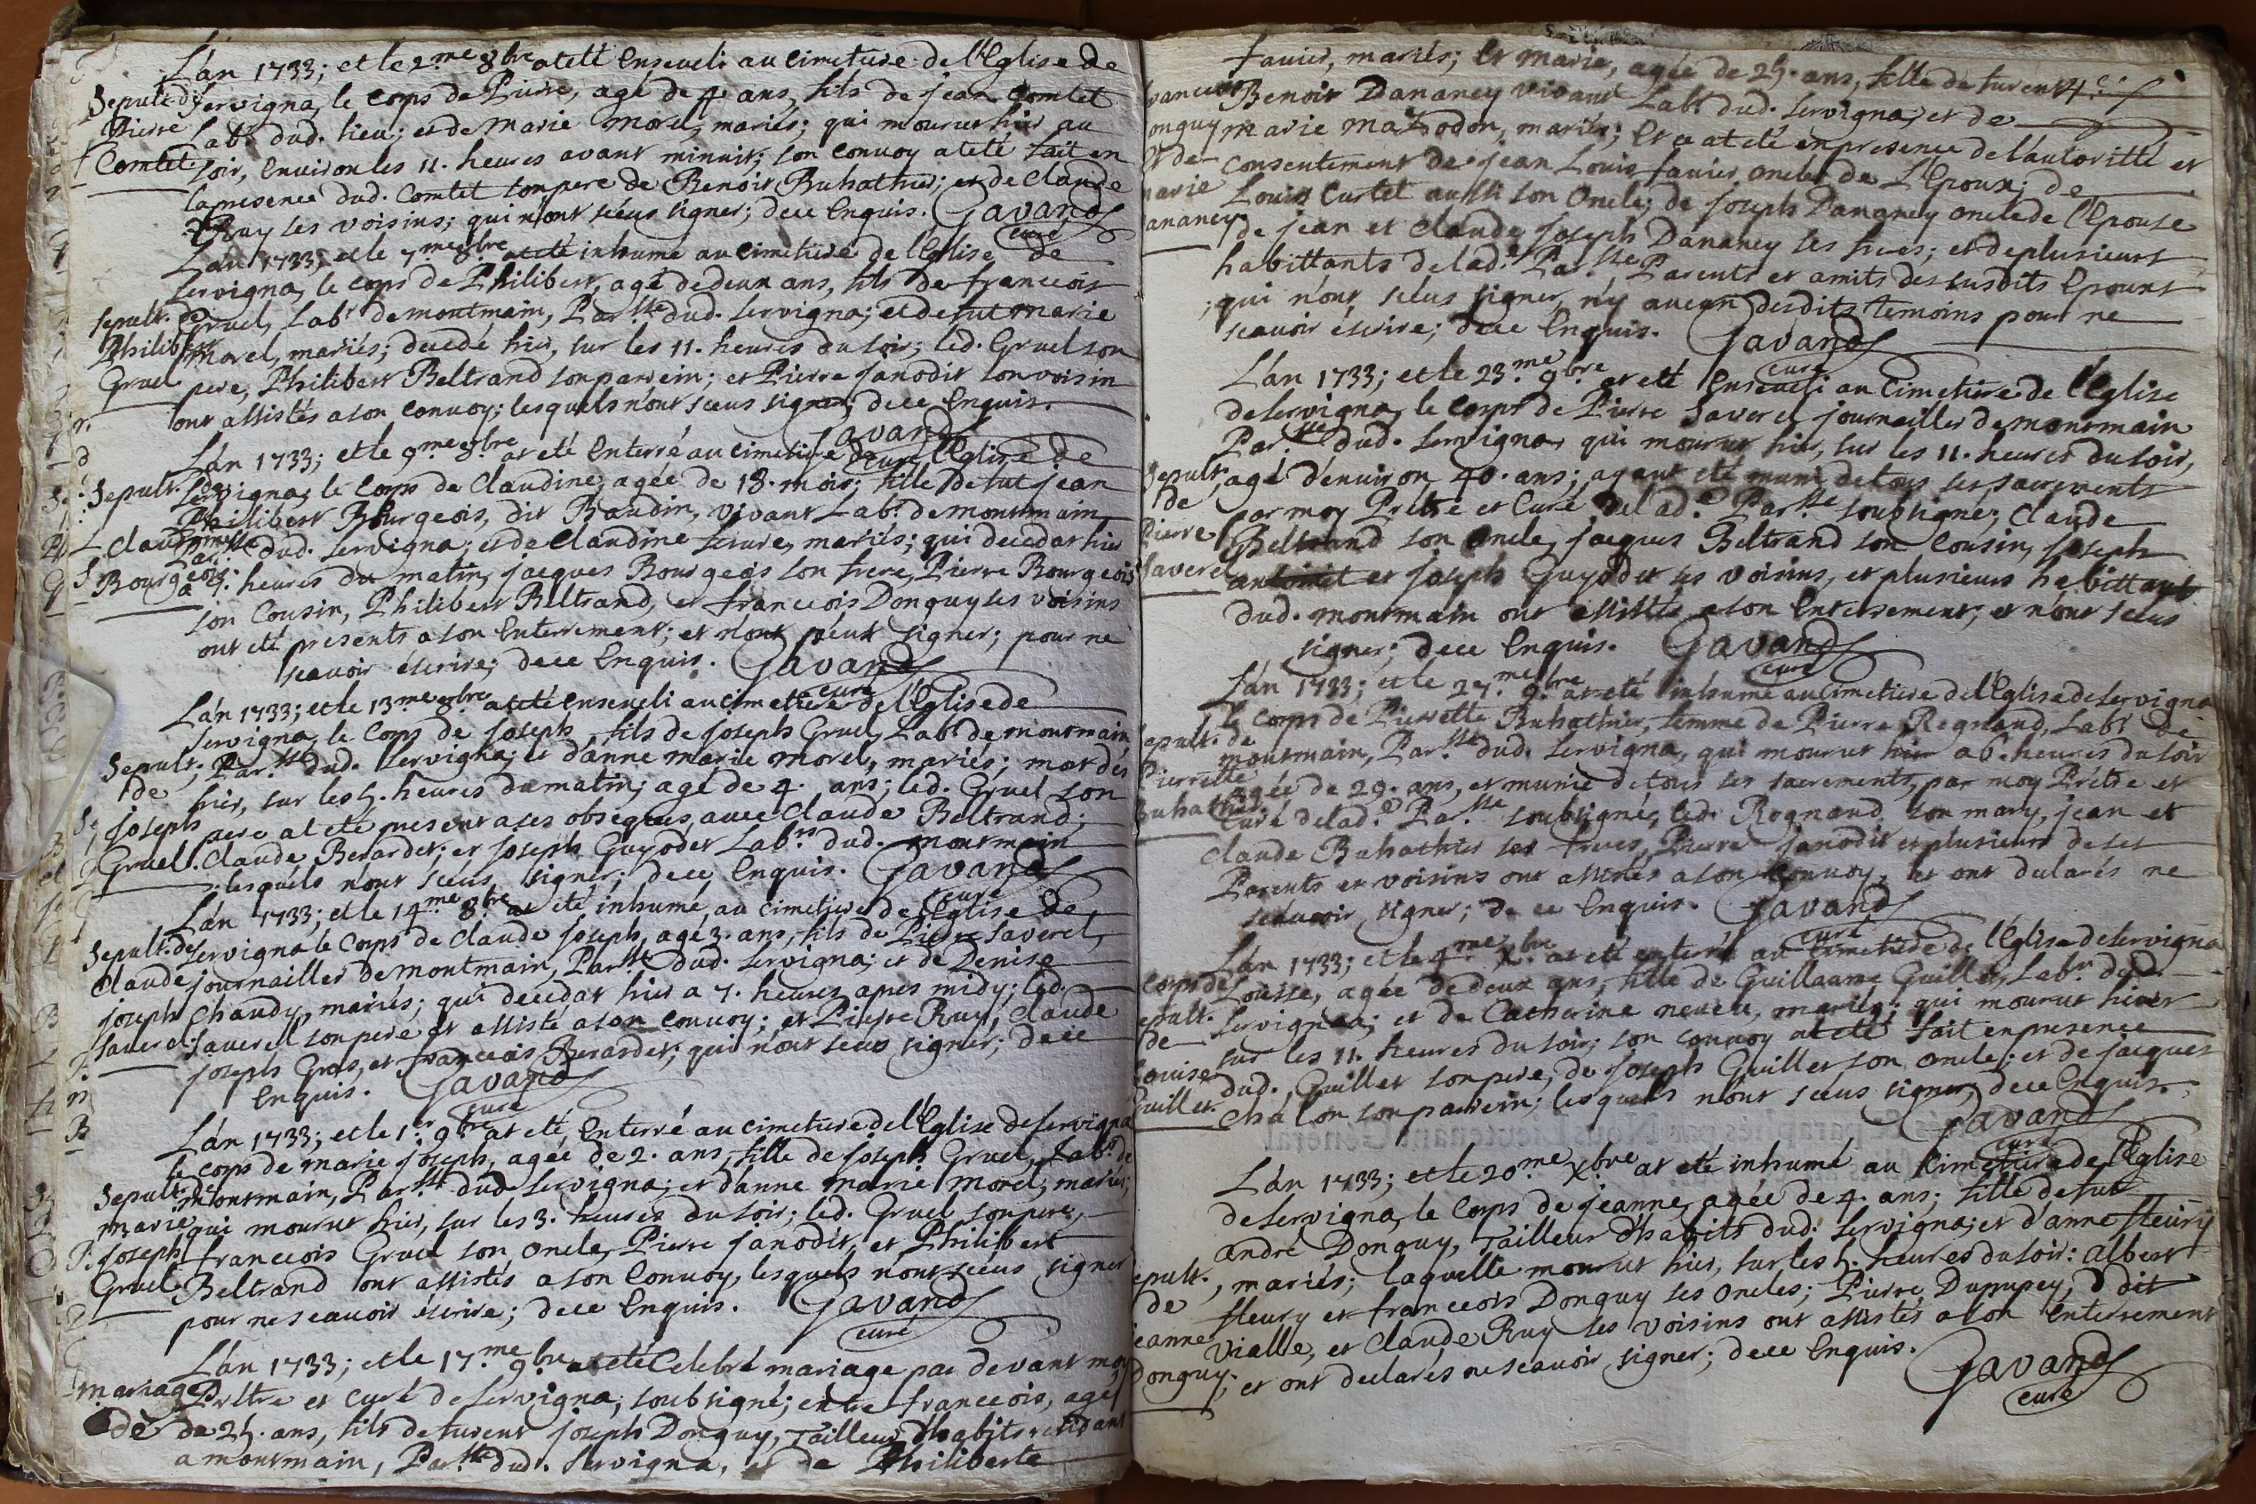 L'an 1733; et le 2.me 8bre at eté Enseveli au Cimetiere de l'Eglise de
Sepult. de Servigna, le Corps de Pierre, agé de 4 ans, fils de jean Comtet
Pierre Labr. dud. lieu; et de Marie Morel, mariés; qui mourut hier au
Comtet soir, Environ les 11. heures avant minuit; son Convoy at eté fait en
la presence dud. Comtet son pere de Benoit Buhathier; et de Claude
Ruy ses voisins; qui n'ont sceus signer; de ce Enquis. Gavand
curé
L'an 1733; et le 7.me 8bre at eté inhumé au Cimetiere de l'Eglise de
Servigna, le Corps de Philibert, agé de deux ans, fils de franceois
Sepult. de Gruel, Labr. de montmain, Par.sse dud. Servigna; et de fut Marie
Philibert Morel, mariés; decedé hier, sur les 11. heures du soir; led. Gruel son
Gruel pere, Philibert Beltrand son parrein; et Pierre janodit son voisin
ont assistés a son Convoy; lesquels n'ont sceus signer; de ce Enquis.
Gavand
curé
L'an 1733; et le 9.me 8bre at eté Enterré au Cimetiere de l'Eglise de
Sepult. de Servigna, le Corps de Claudine, agée de 18. mois; fille de fut jean
Philibert Bourgeois, dit Baudin, vivant Labr. de montmain
Claudine Par.sse dud. Servigna; et de Claudine mariés; qui decedat hier
Bourgeois a 4. heures du matin, jacques Bourgeois son frere, Pierre Bourgeois
son Cousin, Philibert Beltrand, et franceois Donguy ses voisins
ont eté presents a son Enterrement; et n'ont sceus signer; pour ne
scavoir éscrire; de ce Enquis. Gavand
curé
L'an 1733; et le 13.me 8bre at eté Enseveli au Cimettiere de l'Eglise de
Servigna, le Corps de Joseph, fils de joseph Gruel, Labr. de montmain
Sepult. Par.sse dud. Servigna; et d'anne marie morel, mariés; mort dés
de hier, sur les 5. heures du matin; agé de 4. ans; led. Gruel son
joseph pere at eté present a ses obseques avec Claude Beltrand;
Gruel. Claude Berardet; et joseph Guyodet Labrs. dud. montmain
lesquels n'ont sceus signer; de ce Enquis. Gavand
curé
L'an 1733; et le 14.me 8bre at eté inhumé, au Cimetiere de l'Eglise de
Sepult. de Servigna le Corps de Claude joseph, agé 3. ans, fils de Pierre Saverel,
Claude journailler de montmain, Par.sse dud. Servigna; et de Denise
joseph Chaudy, mariés; qui decedat hier a 7. heures apres midy; led.
Saverel. Saverel son pere at assisté a son Convoy; et Pierre Ruy, Claude
joseph Gros, et francois Berardet; qui n'ont sceus signer; de ce
Enquis. Gavand
curé
L'an 1733; et le 1er. 9bre at eté Enterré au Cimetiere de l'Eglise de Servigna
le corps de marie joseph, agée de 2. ans, fille de joseph Gruel, Labr. de
Sepult. de montmain, Par.sse dud. Servigna; et d'anne marie Morel, mariés;
marie qui mourut hier, sur les 3. heures du soir; led. Gruel son pere,
joseph francceois Gruel son oncle, Pierre janodit, et Philibert
Gruel Beltrand ont assistés a son Convoy, lesquels n'ont sceus signer
pour ne scavoir éscrire; de ce Enquis. Gavand
curé
L'an 1733; et le 17.me 9bre at eté Celebré mariage par devant moy
mariage Prêtre et Curé de Servigna, soubsigné; entre francceois, agé
de de 25. ans, fils de furent joseph Donguy, Tailleur d'habits residant
a montmain, Par.sse dud. Servigna, et de Philiberte
favier, mariés; Et Marie, agée de 25. ans, fille de furent
francois Benoit Dananey vivant Labr. dud. Servigna, et de
Donguy marie mazodon, mariés; Et ce at eté en presence de l'autorittté et
Et de Consentement de jean Louis favier oncle de L'Epoux; de
Marie Louis Curtet aussi son Oncle; de joseph Dananey oncle de l'Epouse
Dananey de jean et Claude joseph Dananey ses freres; et de plusieurs
habittants de lad. Par.sse Parents et amits des susdits Epoux
qui n'ont sceus signer, n'y aucun desdits temoins pour ne
scavoir éscrire; de ce Enquis. Gavand
curé
L'an 1733; et le 23.me 9bre at eté Enseveli au Cimetiere de l'Eglise
de Servigna, le Corps de Pierre Saverel, journailler de montmain
Par.sse dud. Servigna, qui mourut hier, sur les 11. heures du soir,
Sepult. agé d'environ 40. ans; ayant eté muni de tous ses sacrements
de par moy Prêtre et Curé de lad.e Par.sse soubsigné; Claude
Pierre Beltrand son oncle, jacques Beltrand son Cousin, joseph
Saverel et joseph Guyodet ses voisins, et plusieurs habittants
dud. montmain ont assistés a son Enterrement, et n'ont sceus
signer; de ce Enquis. Gavand
curé
L'an 1733; et le 27.me 9bre at eté inhumé au Cimetiere de l'Eglise de Servigna
le Corps de Pierrette Buhathier, femme de Pierre Rognand, Labr. de
Sepult. de montmain, Par.sse dud. Servigna, qui mourut hier a 6. heures du soir
Pierrette agée de 29. ans, et munie de tous ses sacrements, par moy Prêtre et
Buhathier Curé de lad.e Par.sse soubsigné, led. Rognand son mary, jean et
Claude Buhathier ses freres, Pierre janodit et plusieurs de ses
Parents et voisins ont assistés a son Convoy, et ont declarés ne
scavoir signer; de ce Enquis. Gavand
curé
L'an 1733; et le 4.me Xbre at eté enterré au Cimetiere de l'Eglise de Servigna
Corps de Louisse, agée de deux ans, fille de Guillaume Guillet, Labr. dud.
Sepult. Servigna; et de Catherine neveu, mariés; qui mourut hier
de sur les 11. heures du soir; son Convoy at eté fait en presence
Louise dud. Guillet son pere, de joseph Guillet son oncle; et de jacques
Guillet. Chalon son parrein; lesquels n'ont sceus signer, de ce Enquis.
Gavand
curé
L'an 1733; et le 20.me Xbre at eté inhumé au Cimetiere de l'Eglise
de Servigna, le Corps de jeanne, agée de 4. ans; fille de fut
andré Donguy, Tailleur d'habits dud. Servigna; et d'anne fleury
Sepult. mariés; laquelle mourut hier, sur les 5. heures du soir: albert
de fleury et francceois Donguy ses oncles; Pierre Dupupey, dit
jeanne Vialle, et Claude Ruy ses voisins ont assistés a son Enterrement
Donguy. et ont declarés ne scavoir signer; de ce Enquis. Gavand
curé